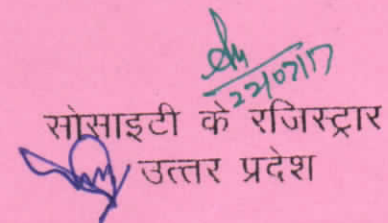 22/07/17
सोसाइटी के रजिस्ट्रार
उत्तर प्रदेश